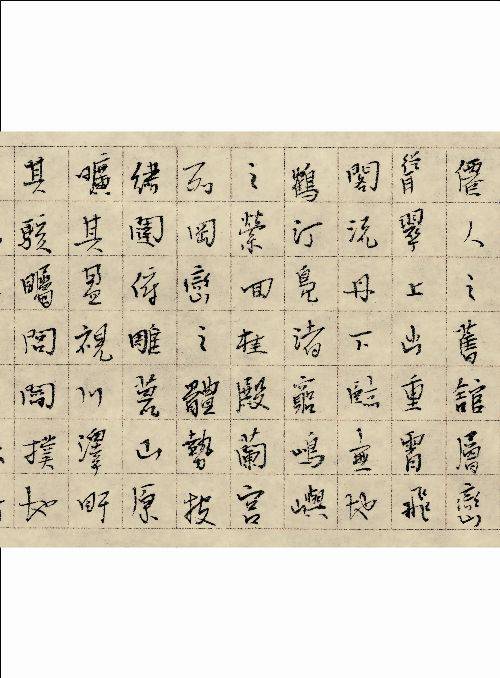 僊人之舊館層巒
聳翠上出重霄飛
閣流丹下臨無地
鶴汀鳧渚窮嶋嶼
之縈回桂殿蘭宮
列岡巒之體勢披
繡闥俯雕甍山原
曠其盈視川澤盱
其駭矚閭閻撲地